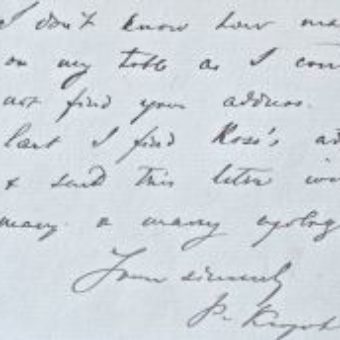 I don't know how ma
on my table as I con
not find your address.
last I find Rose's ad
& send this letter
many a many apolog
Yours sincerely
P.